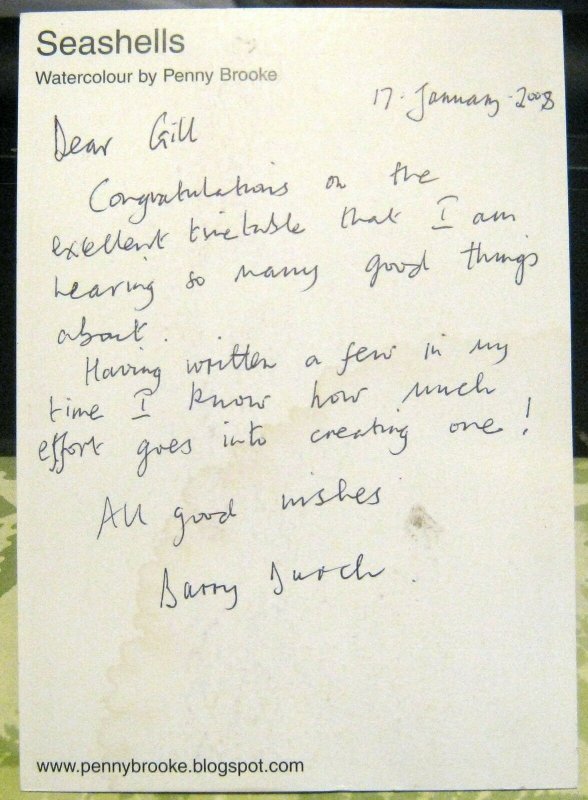 Seashells
Watercolour by Penny Brooke
17. January. 2008
Dear Gill
Congratulations on the
exellent timetable that I am
hearing so many good things
about.
Having written a few in my
time I know how much
effort goes into creating one!
All good wishes
Barry
www.pennybrooke.blogspot.com